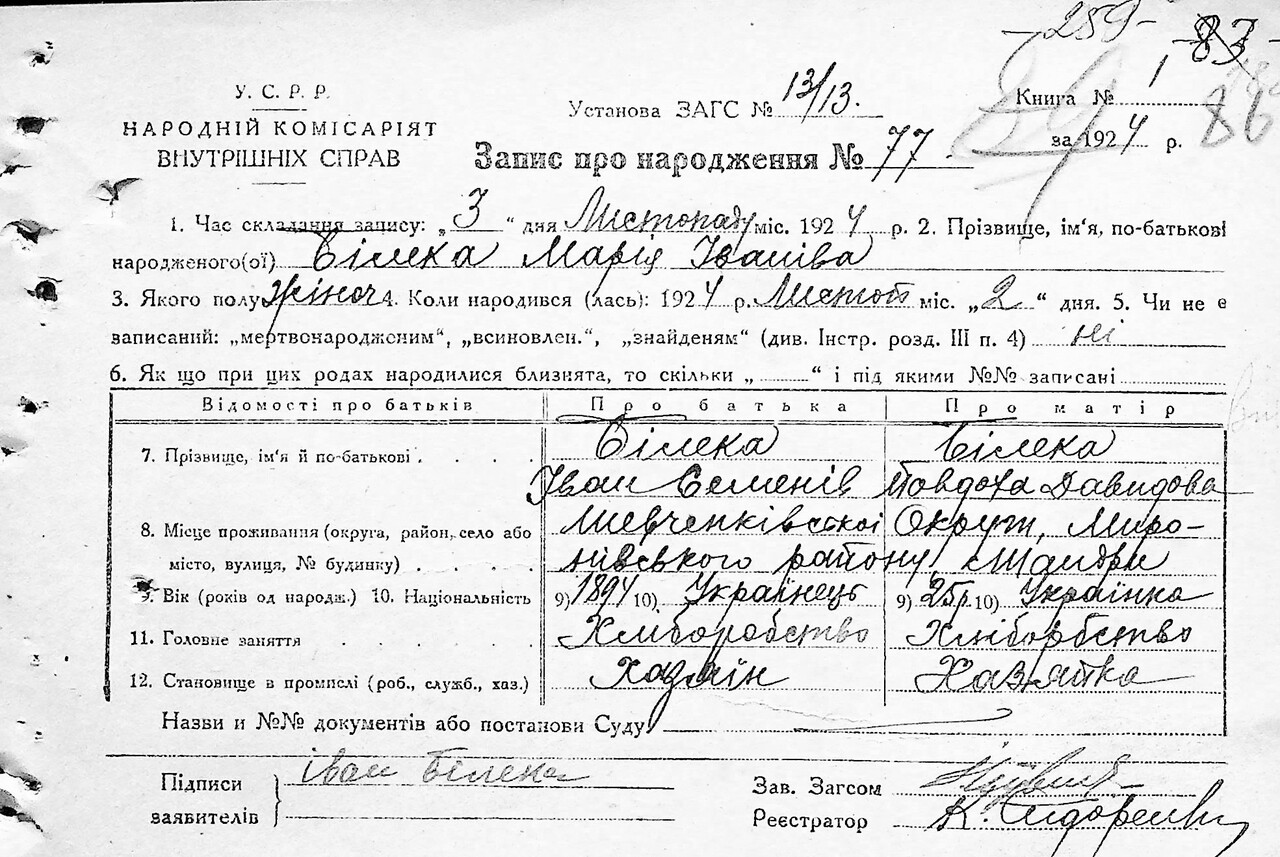 -259- -83-
86
89
У. С. Р. Р.
НАРОДНІЙ КОМІСАРІЯТ
ВНУТРІШНІХ СПРАВ
Установа ЗАГС № 13/13.
Книга № 1
за 1924 р.
Запис про народження № 77.
1. Час складання запису: „3" дня Листопаду міс. 1924 р. 2. Прізвище, ім'я, по-батькові
народженого(ої) Білека Марія Іванівa
3. Якого полу жіноч 4. Коли народився (лась): 1924 р. Листоп міс. „2" дня. 5. Чи не є
записаний: „мертвонародженим", „всиновлен.", „знайденям" (див. Інстр. розд. III п. 4) ні
6. Як що при цих родах народилися близнята, то скільки „ " і під якими №№ записані
Відомості про батьків Про батька Про матір
7. Прізвище, ім'я й по-батькові Білека Білека
Іван Семенів Повдоха Давидова
8. Місце проживання (округа, район, село або Шевченківської Округи, Миро-
місто, вулиця, № будинку) нівського району, с Шандри
9. Вік (років од народж.) 10. Національність 9) 1894 10) Українець 9) 25 р. 10) Українка
11. Головне заняття Хліборобство Хліборбство
12. Становище в промислі (роб., служб., хаз.) Хазяїн Хазяйка
Назви и №№ документів або постанови Суду
Підписи іван білека
заявителів
Зав. Загсом
Реєстратор К. Сидоренко